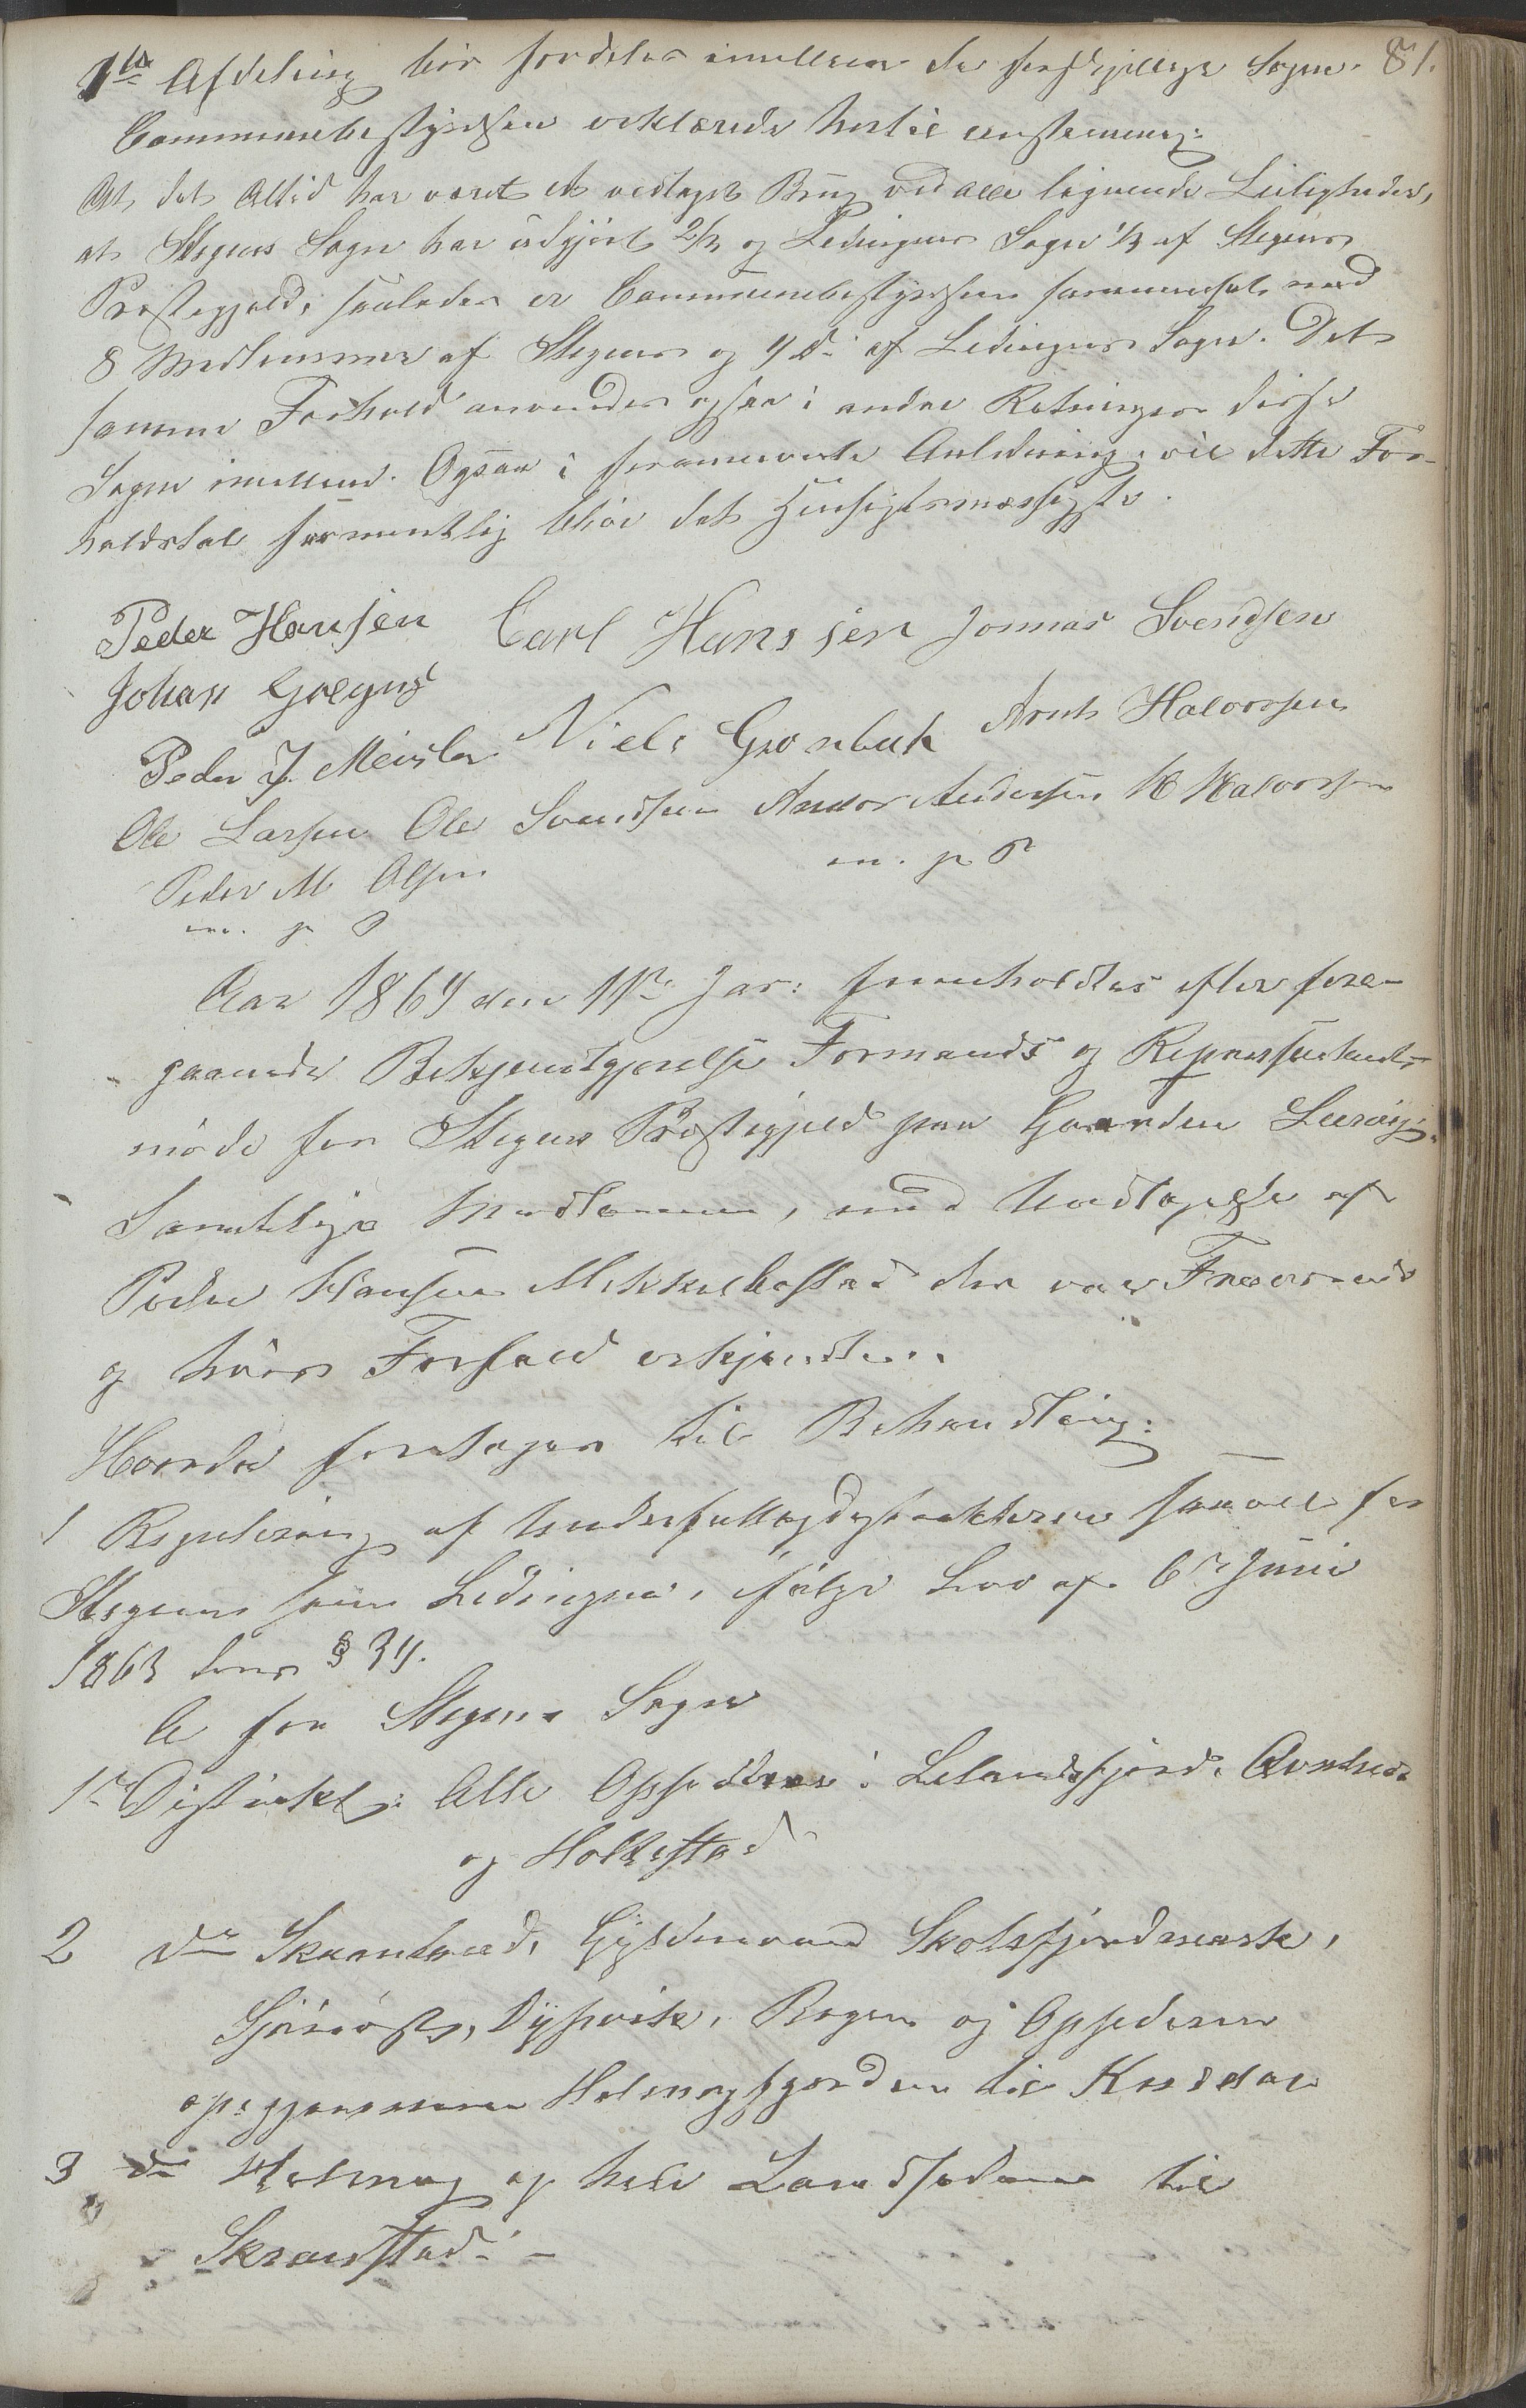 81.
1ste Afdeling bør fordeles imellem de forskjellige Sogne.
Communebestyrelsen erklærede hertil eenstemmig:
At det altid har været et vedtaget Brug ved alle lignende Leiligheder,
at Stegens Sogn har udgjort 2/3 og Ledingens Sogn 1/3 af Stegens
Præstegjeld, saaledes er Communebestyrelsen sammensat med
8 Medlemmer af Stegens og 4 do af Ledingens Sogn. Det
samme Forhold anvendes ogsaa i andre Retninger disse
Sogne imellem. Ogsaa i heromværte Anledning vil dette For-
holdstal formentlig blive det Hensigtsmæssigste.
Peder Hansen Carl Hanssen Jonnas Svendsen
Johan
Peder J. Meisler Niels Grønbek Arnt Halvorsen
Ole Larsen Ole Svendsen Anders Andersen H Halvorsen
m. p P
Peder M Olsen
m. p P
Aar 1864 den 11te Jan: fremholdtes efter fore-
gaaende Bekjendtgjørelse Formands og Repræsentant-
møde for Stegens Præstegjeld paa Gaarden Leerøig.
Samtlige Medlemmer, med Undtagelse af
Peder Hansen Mikkelbostad der var Fraværende
og hvis Forfald erkjendtes.
Hvorda foretages til Behandling:
1 Regulering af Underfattigdistrikterne saavel for
Stegens som Ledingen, ifølge Lov af 6te Juni
1863 dens § 34.
a for Stegens Sogn
1ste Distrikt: Alle Opsidderne i Lelandsfjord,
og Holkestad
2 do Skandland, Skotsfjordmark,
Dypvik, Bogen og Opsidderne
opigjennem Holmagfjorden til
3 do Holmag og hele Landsiden til
Skranstad. –